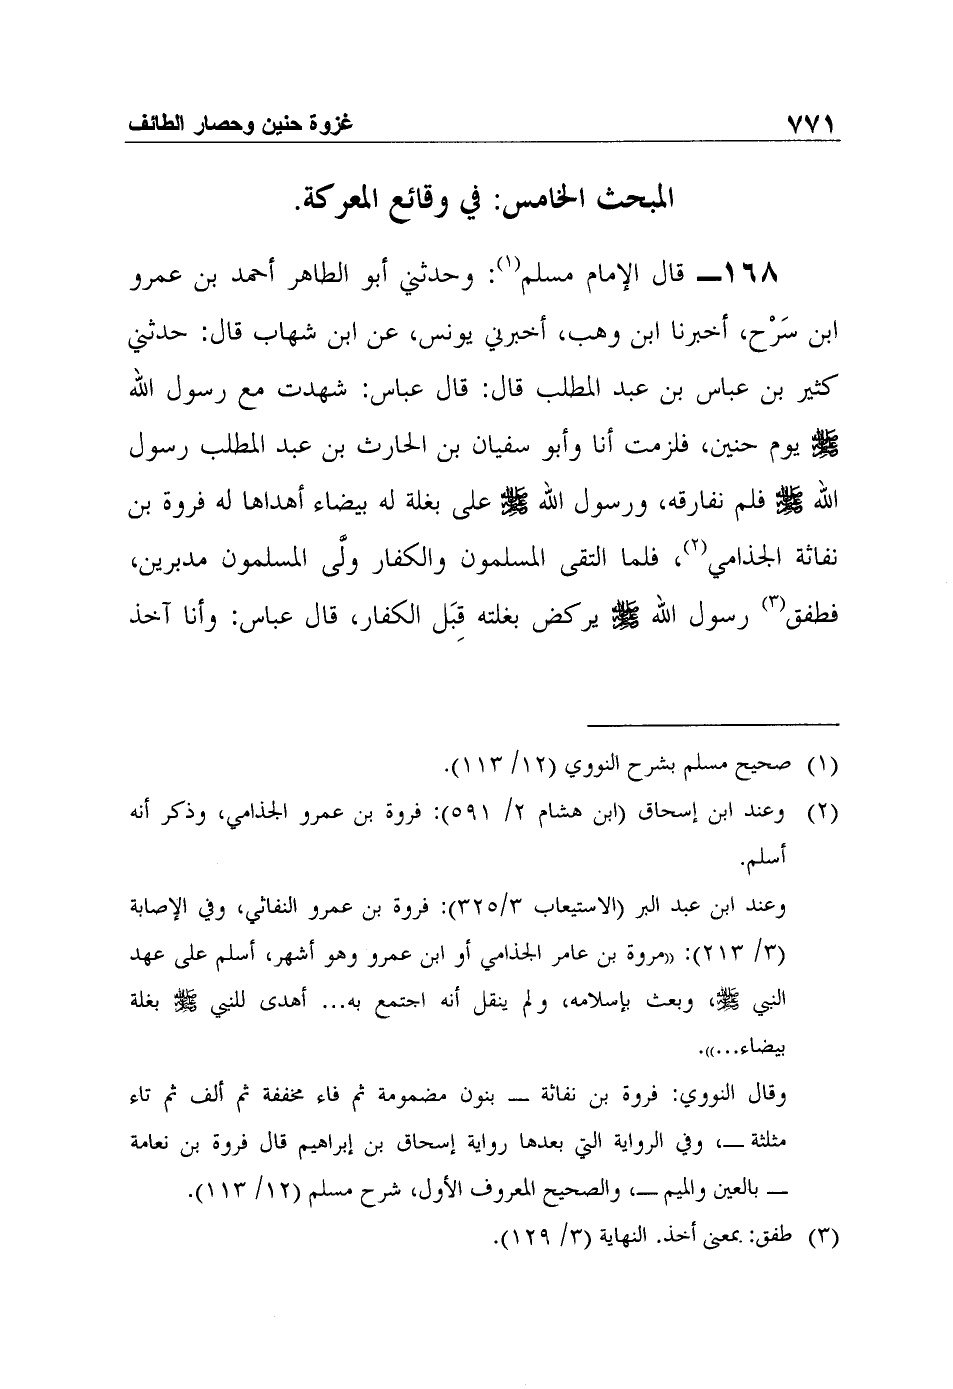 ٧٧١ غزوة حنين وحصار الطائف
المبحث الخامس: في وقائع المعركة.
١٦٨ــ قال الإمام مسلم(١): وحدثني أبو الطاهر أحمد بن عمرو
ابن سَرْح، أخبرنا ابن وهب، أخبرني يونس، عن ابن شهاب قال: حدثني
كثير بن عباس بن عبد المطلب قال: قال عباس: شهدت مع رسول الله
ﷺ يوم حنين، فلزمت أنا وأبو سفيان بن الحارث بن عبد المطلب رسول
الله ﷺ فلم نفارقه، ورسول الله ﷺ على بغلة له بيضاء أهداها له فروة بن
نفاثة الجذامي(٢)، فلما التقى المسلمون والكفار ولَّى المسلمون مدبرين،
فطفق(٣) رسول الله ﷺ يركض بغلته قِبَل الكفار، قال عباس: وأنا آخذ
(١) صحيح مسلم بشرح النووي (١٢/ ١١٣).
(٢) وعند ابن إسحاق (ابن هشام ٢/ ٥٩١): فروة بن عمرو الجذامي، وذكر أنه
أسلم.
وعند ابن عبد البر (الاستيعاب ٣/ ٣٢٥): فروة بن عمرو النفاثي، وفي الإصابة
(٣/ ٢١٣): ((مروة بن عامر الجذامي أو ابن عمرو وهو أشهر، أسلم على عهد
النبي ﷺ، وبعث بإسلامه، ولم ينقل أنه اجتمع به... أهدى للنبي ﷺ بغلة
بيضاء...)).
وقال النووي: فروة بن نفاثة ــ بنون مضمومة ثم فاء مخففة ثم ألف ثم تاء
مثلثة ــ، وفي الرواية التي بعدها رواية إسحاق بن إبراهيم قال فروة بن نعامة
ــ بالعين والميم ــ، والصحيح المعروف الأول، شرح مسلم (١٢/ ١١٣).
(٣) طفق: بمعنى أخذ. النهاية (٣/ ١٢٩).